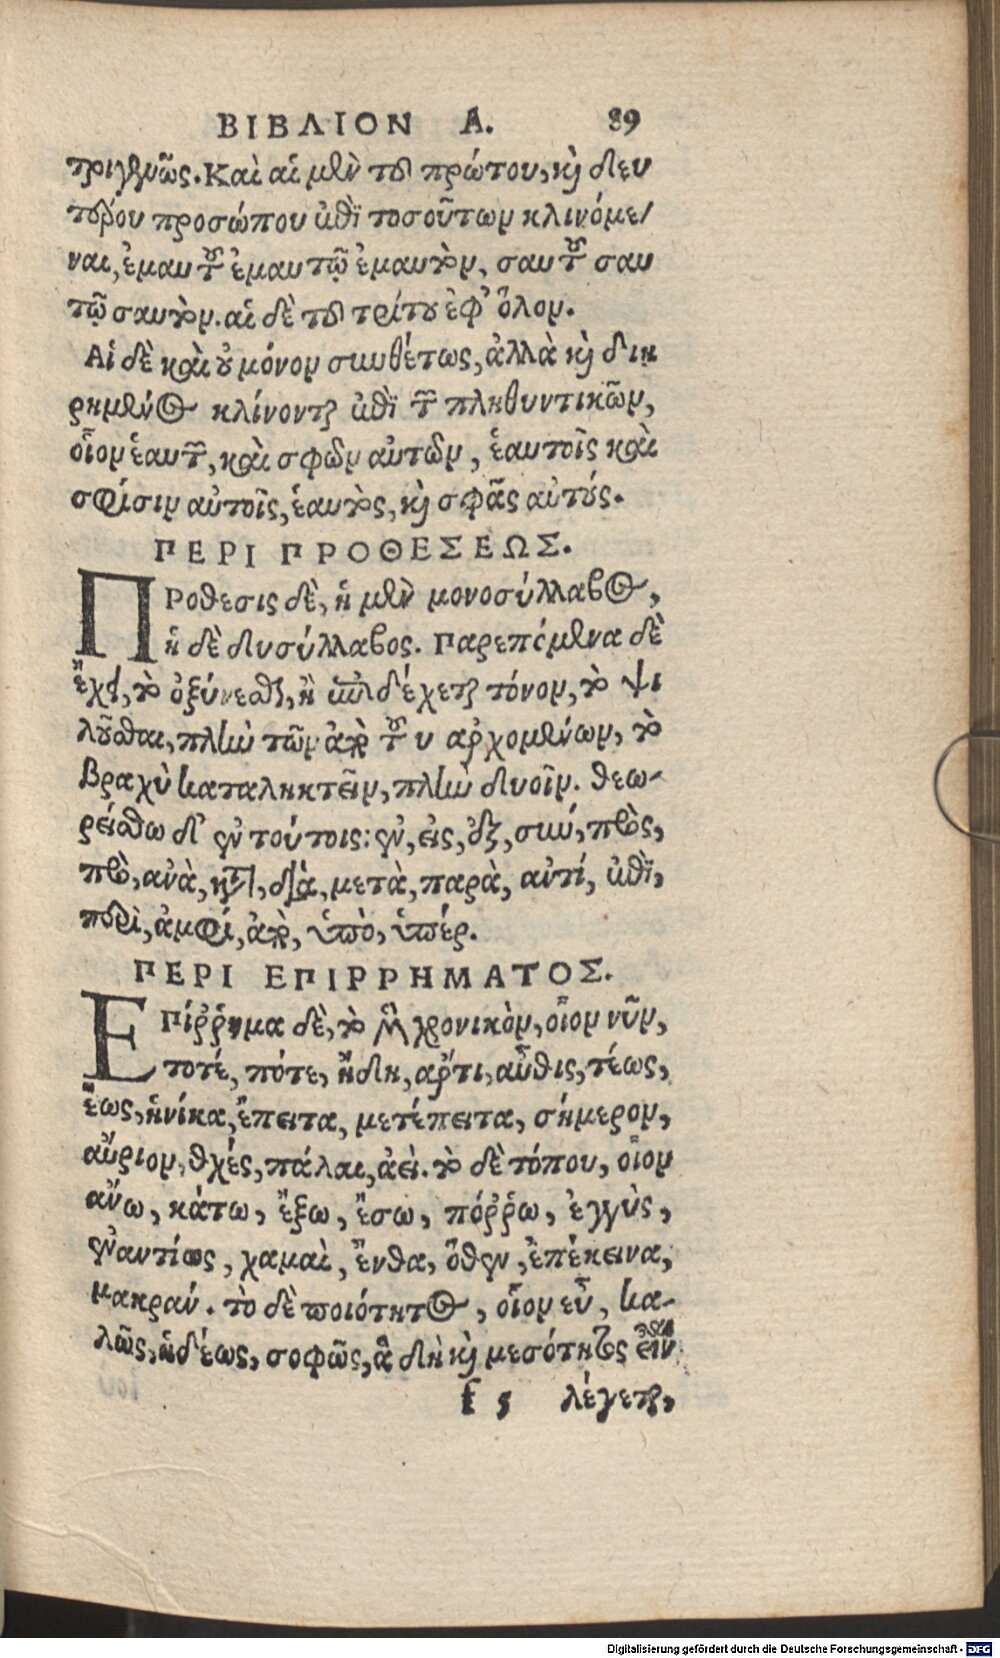 ΒΙΒΛΙΟΝ Α. 89
τριγενῶς. Καὶ αἱ μὲν τοῦ πρώτου, καὶ δευ
τέρου προσώπου μέχρι τοσοῦτων κλινόμε/
ναι, ἐμαυτοῦ ἐμαυτῷ ἐμαυτὸν, σαυτοῦ σαυ
τῷ σαυτὸν. αἱ δὲ τοῦ τρίτου ἐφ' ὅλον.
Αἱ δὲ καὶ οὐ μόνον συνθέτως, ἀλλὰ καὶ διη
ρημένως κλίνονται ἐπὶ τῶν πληθυντικῶν,
οἷον ἑαυτῶν, καὶ σφῶν αὐτῶν, ἑαυτοῖς καὶ
σφίσιν αὐτοῖς, ἑαυτοὺς, καὶ σφᾶς αὐτούς.
ΠΕΡΙ ΠΡΟΘΕΣΕΩΣ.
ΠΡοθεσις δὲ, ἡ μὲν μονοσύλλαβος,
ἡ δὲ δισύλλαβος. Παρεπόμενα δὲ
ἔχει, τὸ ὀξύνεσθαι, ἢ δέχεται τόνον, τὸ ψι
λοῦσθαι, πλὴν τῶν ἀπὸ τοῦ υ ἀρχομένων, τὸ
βραχὺ καταληκτεῖν, πλὴν δυοῖν. θεω-
ρείσθω δ' ἐν τούτοις: ἐν, εἰς, ἐξ, σύν, πρὸς,
πρὸ, ἀνὰ, κατὰ, διὰ, μετὰ, παρὰ, ἀντί, ἐπὶ,
περὶ, ἀμφί, ἀπὸ, ὑπὸ, ὑπέρ.
ΠΕΡΙ ΕΠΙΡΡΗΜΑΤΟΣ.
ΕΠίῤῥημα δὲ, τὸ μὲν χρονικὸν, οἷον νῦν,
τοτέ, πότε, ἤδη, ἄρτι, αὖθις, τέως,
ἕως, ἡνίκα, ἔπειτα, μετέπειτα, σήμερον,
αὔριον, χθές, πάλαι, ἀεὶ. τὸ δὲ τόπου, οἷον
ἄνω, κάτω, ἔξω, ἔσω, πόῤῥω, ἐγγὺς,
ἐναντίως, χαμαὶ, ἔνθα, ὅθεν, ἐπέκεινα,
μακράν. τὸ δὲ ποιότητος, οἷον εὖ, κα-
λῶς, ἡδέως, σοφῶς, ἃ δὴ καὶ μεσότητος εἶναι
f 5 λέγεται,
Digitalisierung gefördert durch die Deutsche Forschungsgemeinschaft - DFG